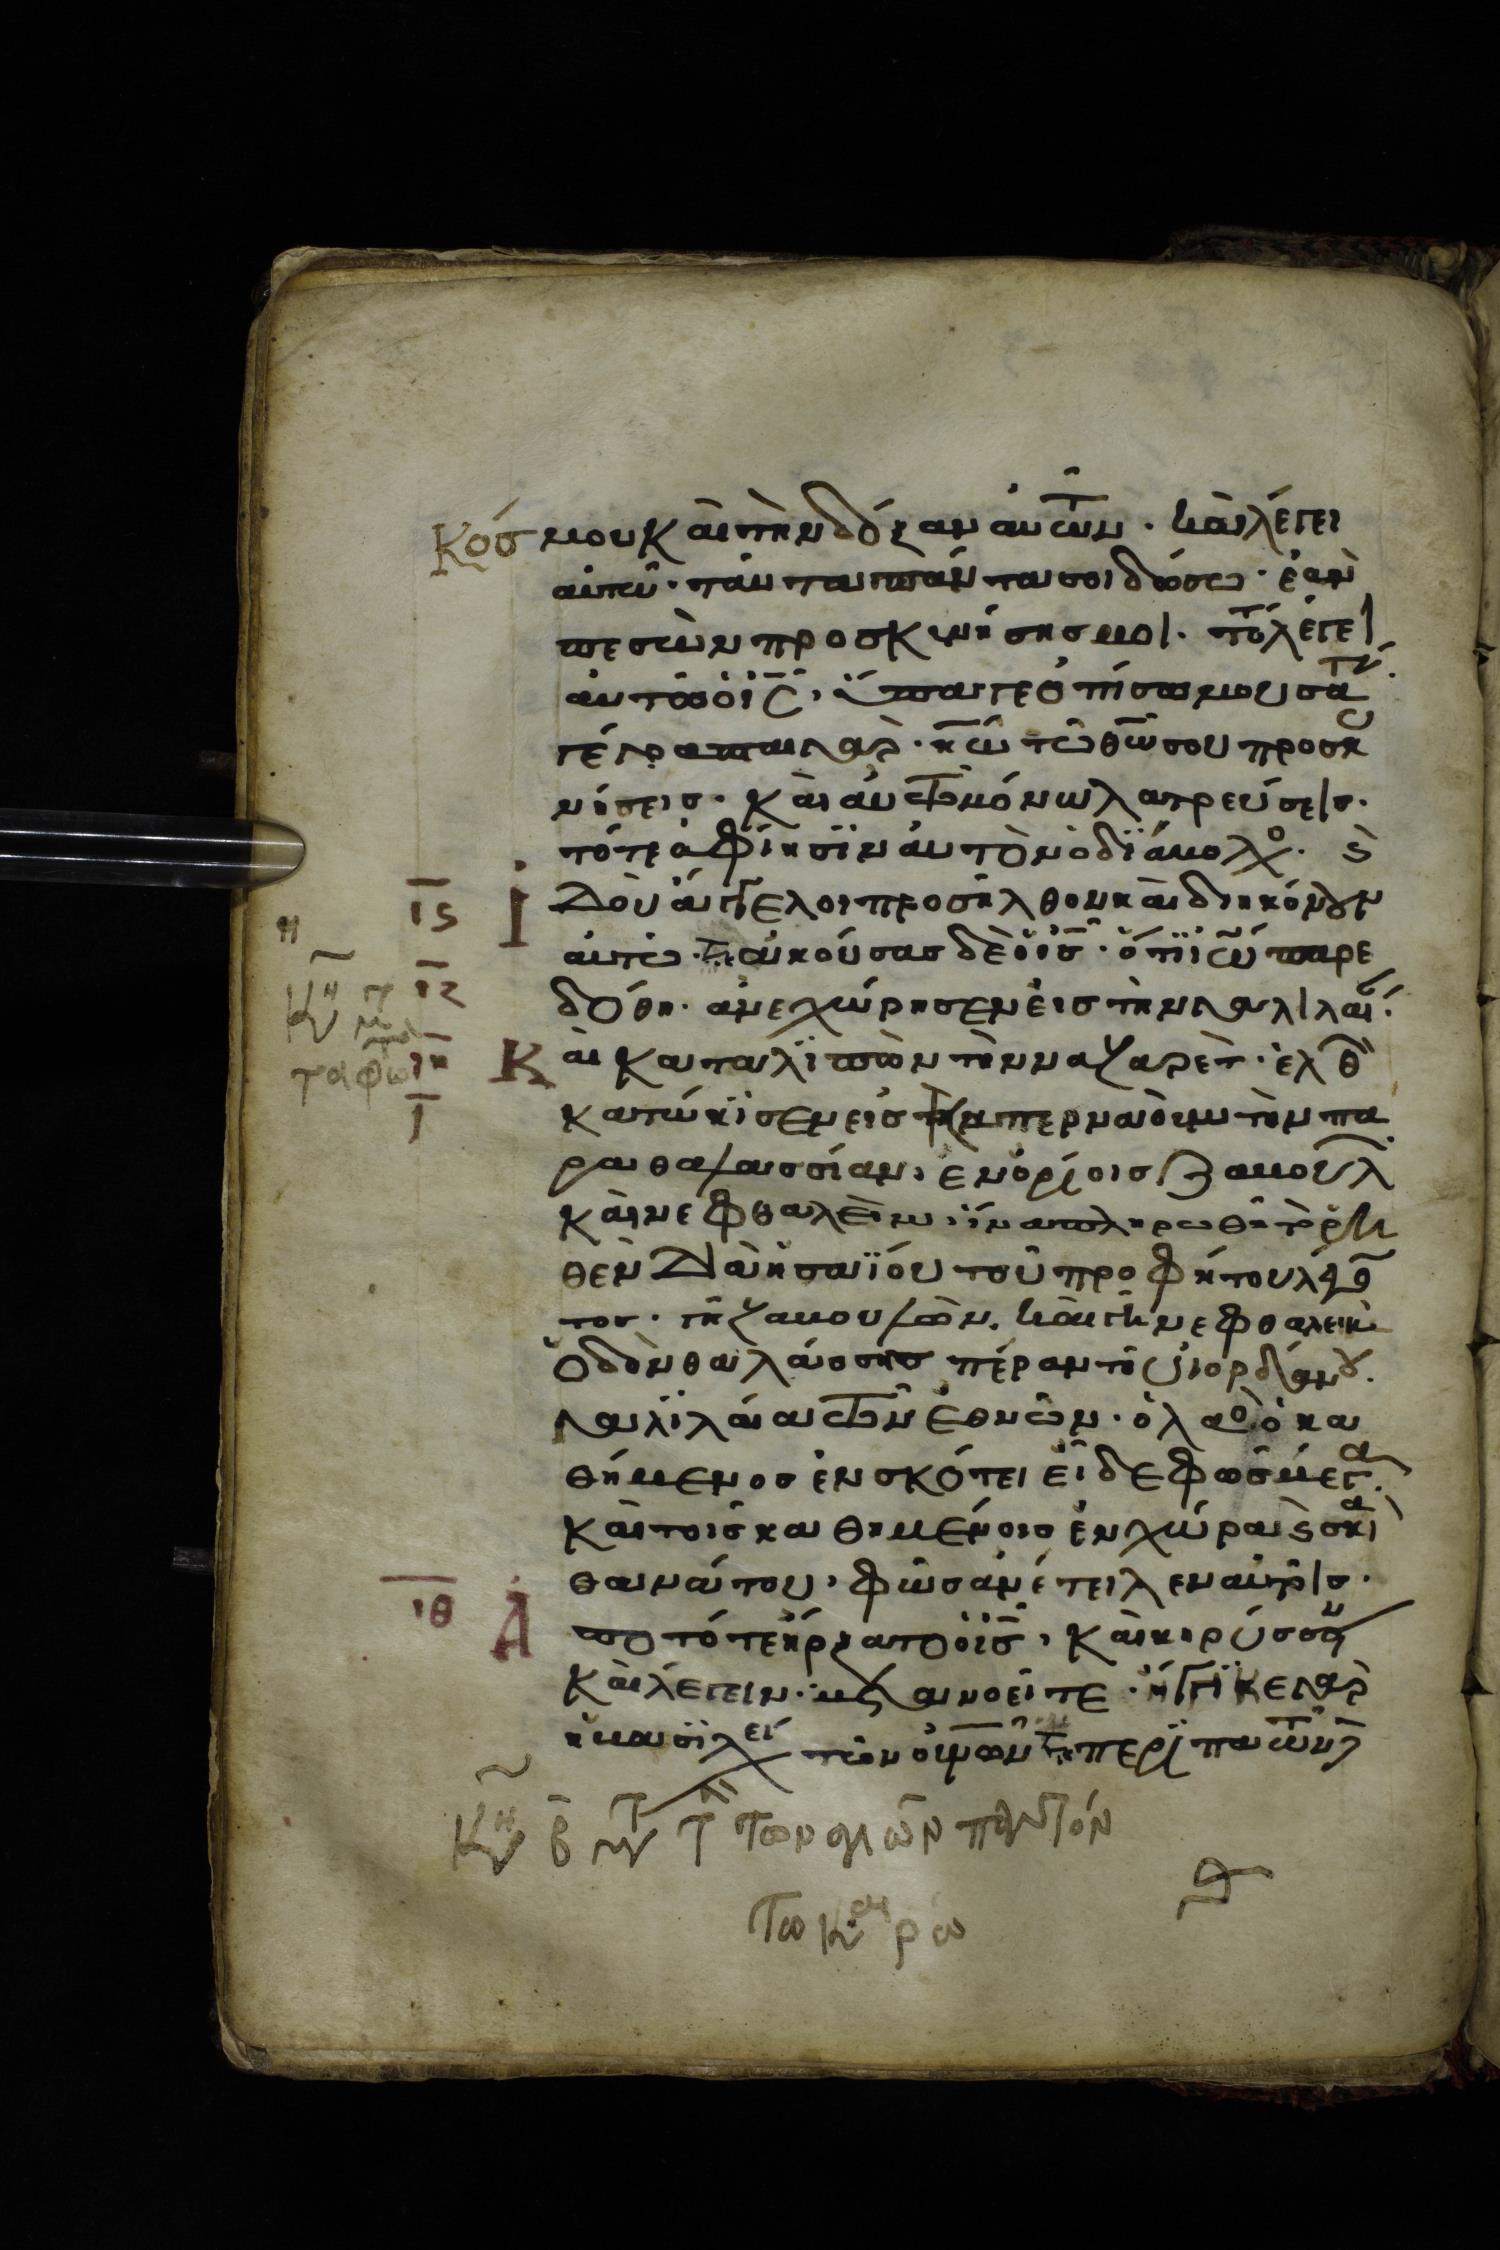 κόσμου κὰι τὴν δόξαν ἀυτῶν · κὰι λέγει
αὐτῶ · πάντα πάντα σοι δώσω · ἐὰν
πεσὼν προσκυνήσησ μοι · τότε λέγει
ἀυτῶ ὁ ις, ὕπαγε ὀπίσω μου σατα
γέγραπται γὰρ · κν τὸν θν σου προσκυ
νήσεις · κὰι ἀυτῶ μόνω λατρεύσεις ·
τότε ἀφίησϊν ἀυτὸν ὁ δϊάβολο · ϛ
ϊδοὺ ἄγγελοι προσῆλθον κὰι διηκόνουν
αὐτῶ · ἀκούσας δὲ ὁ ις · ὅτϊ ϊω παρε
δόθη · ἀνεχώρησεν ἐις τὴν γαλιλαί ·
ιϛ
ιζ
κὰι καταλϊπὼν τὴν ναζαρὲτ · ἐλθ
ιη
κατώκϊσεν εἰς καπερναοὺμ τὴν πα
ραθαλασσίαν, ἐν ὁρίοις ζαβουλ
κὰι νεφθαλεὶμ · ἵνα πληρωθῆ τὸ ῥη
θὲν διὰ ἡσαϊου τοῦ προφήτου λέγο
τος · γῆ ζαβουλὼν. κὰι γῆ νεφθαλεὶμ
ὁδὸν θαλάσσης πέραν τοῦ ἰορδάνου.
γαλϊλάια τῶν ἐθνῶν · ὁ λαὸ ὁ κα
θήμενος ἐν σκότει εἶδε φῶς μεγα ·
κὰι τοῖς καθημένοις ἐν χώρα ϛ σκιᾶ
θανάτου, φῶς ἀνέτειλεν αὐτοῖς ·
ιθ
ἀπὸ τότε ἤρξατο ὁ ις, κὰι κηρύσσειν
κὰι λέγειν · μετανοεῖτε · ἤγγϊκε γὰρ
ἡ βασϊλεί τῶν οὐνῶν περϊπατῶν
τω καιρω